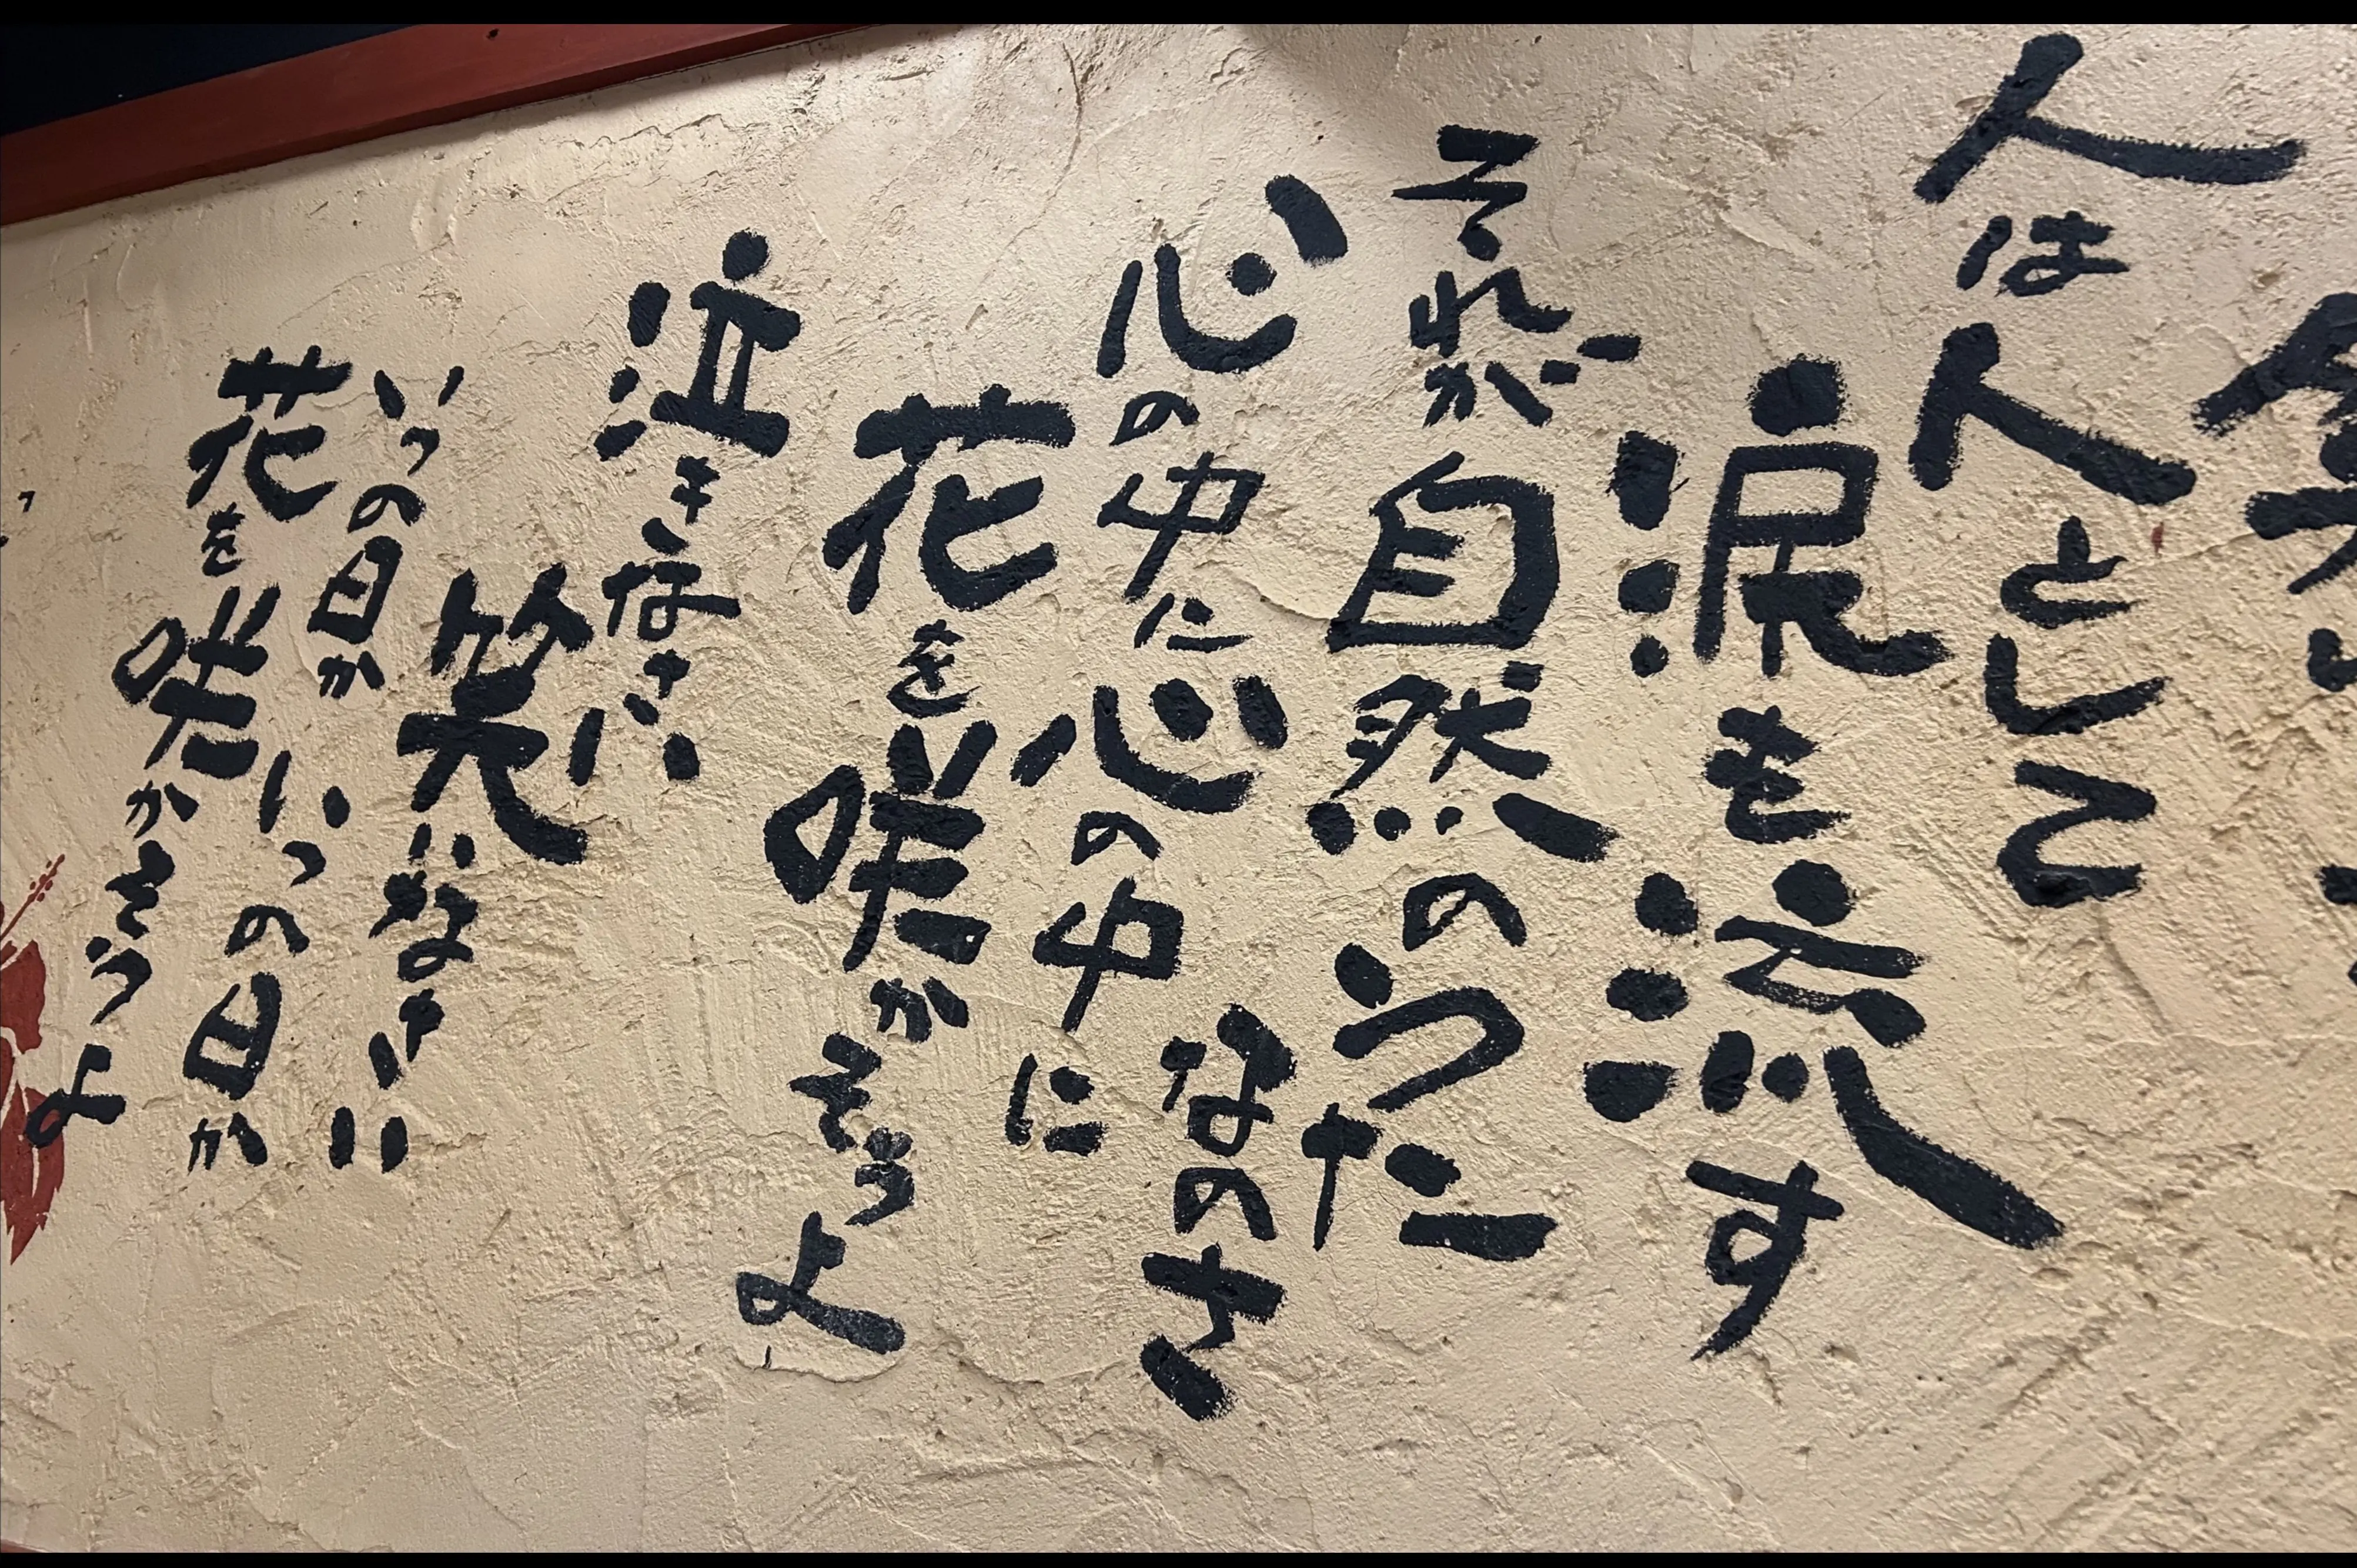 人は人として
涙も流す
それが自然のうた
なのさ
心の中に心の中に
花を咲かそうよ
泣きなさい
笑いなさい
いつの日かいつの日か
花を咲かそうよ